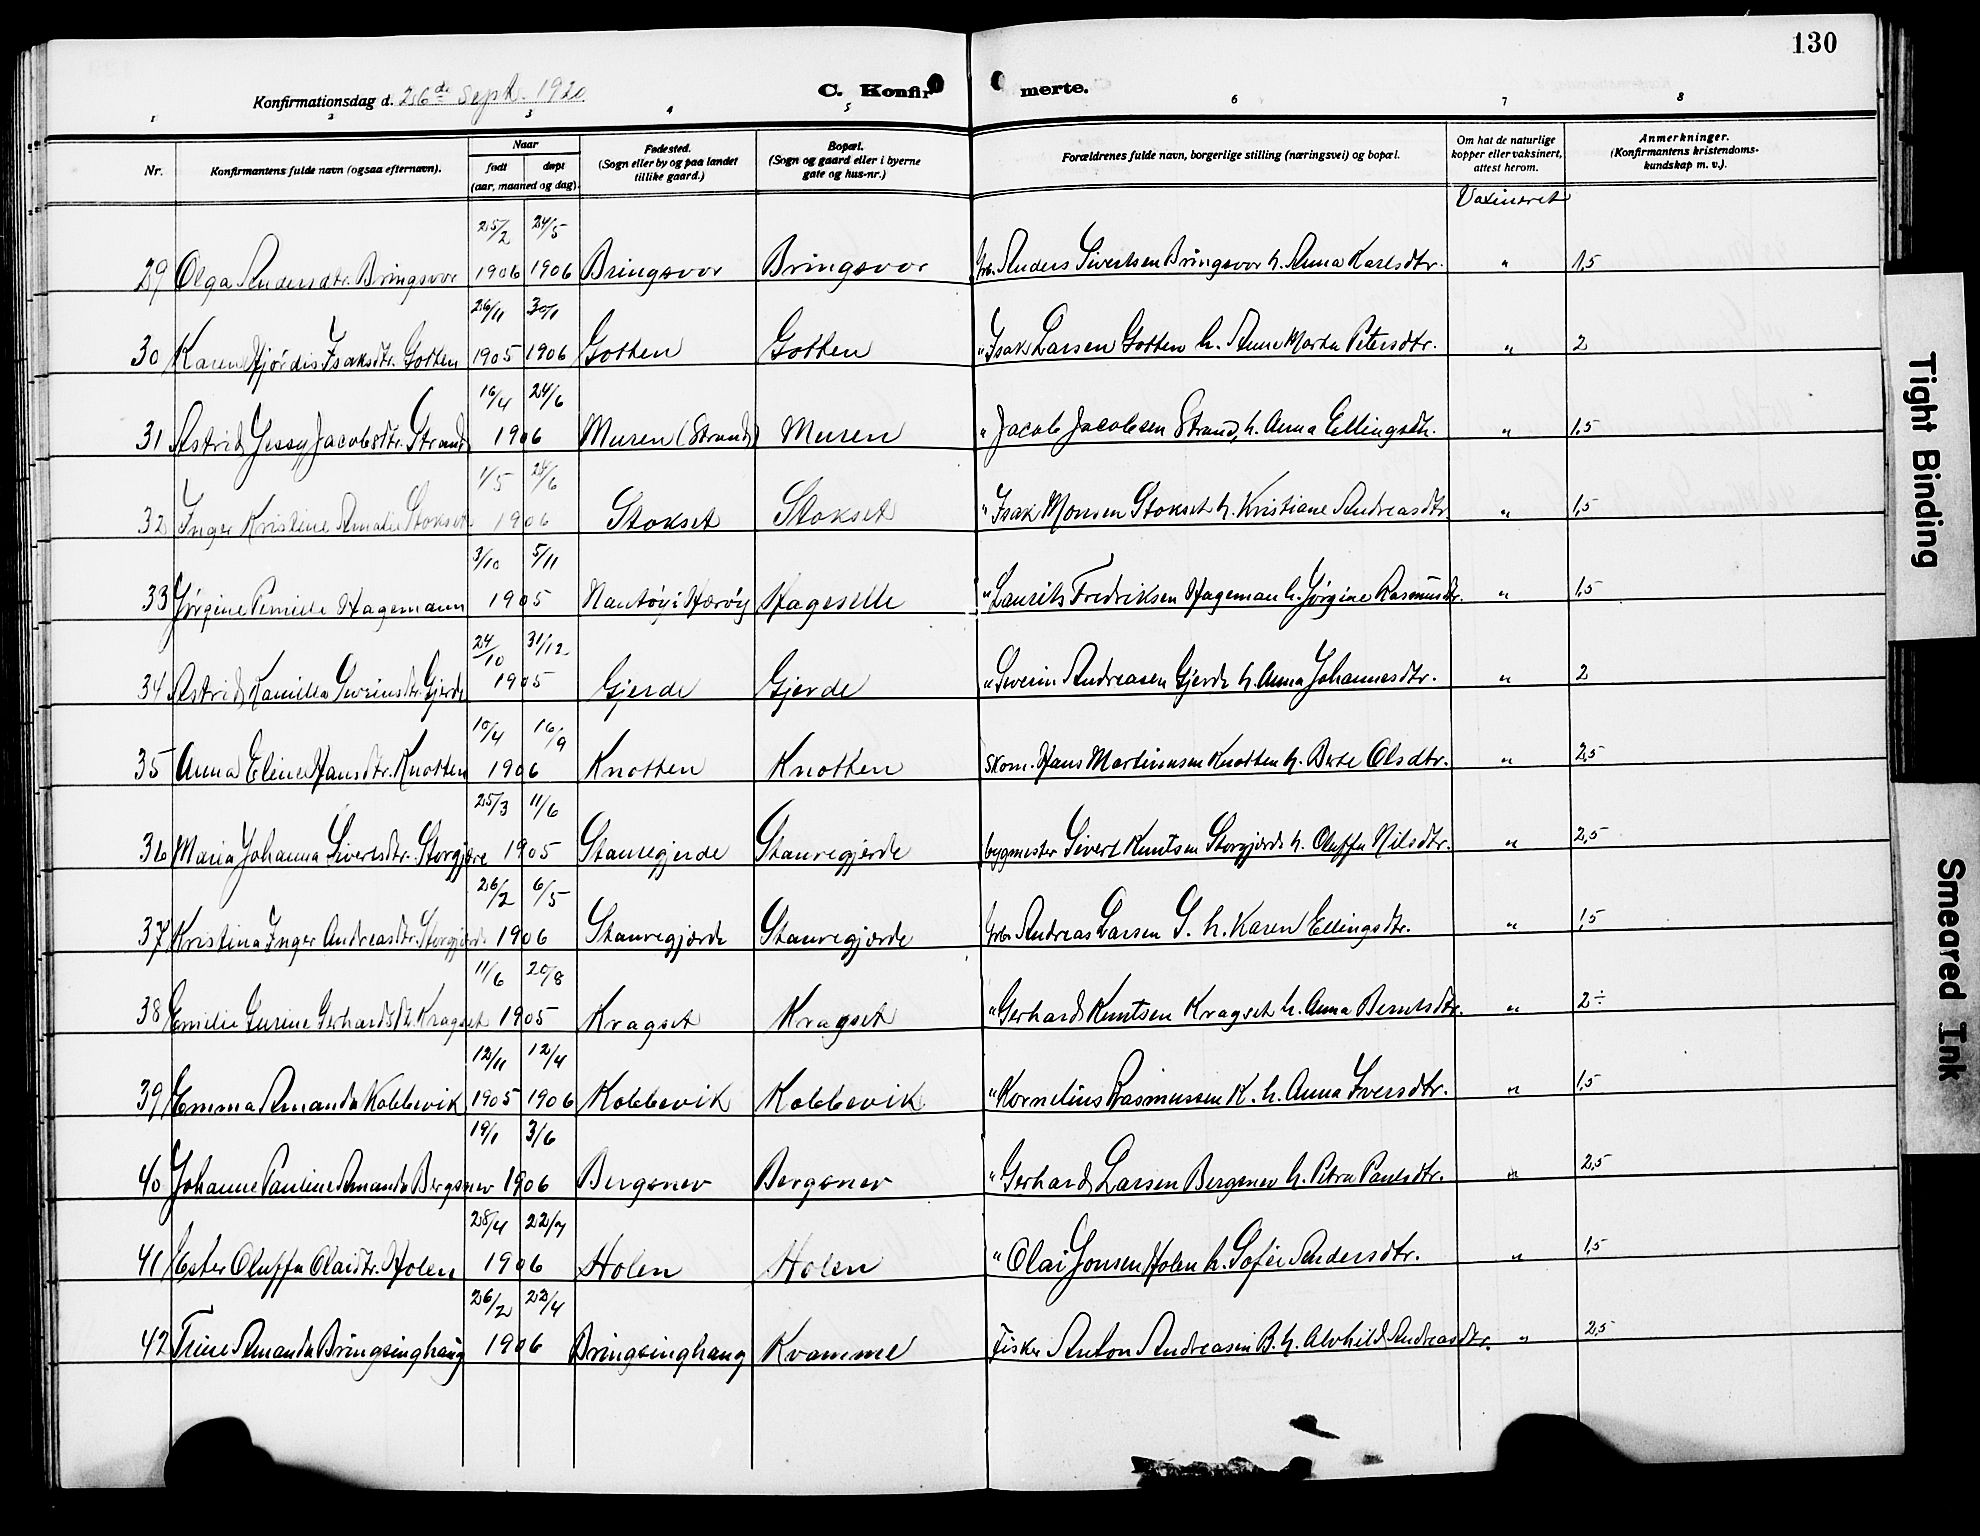 130
Konfirmationsdag d. 26de Sept. 1920
C. Konfir merte.
1 2 3 4 5 6 7 8
Nr.
Konfirmantens fulde navn (ogsaa efternavn).
Naar
født døpt
(aar, maaned og dag)
Fødested.
(Sogn eller by og paa landet
tillike gaard.)
Bopæl.
(Sogn og gaard eller i byerne
gate og hus-nr.)
Forældrenes fulde navn, borgerlige stilling (næringsvei) og bopæl.
Om hat de naturlige
kopper eller vaksinert,
attest herom.
Anmerkninger.
(Konfirmantens kristendoms-
kundskap m. v.).
Vaxineret
25/2 24/5
29 Olga Andersdtr. Bringsvor 1906 1906 Bringsvor Bringsvor Anders Sivertsen Bringsvor h. Anna Karlsdtr. " 1,5
26/11 30/1
30 Karen Hjørdis Isaksdtr. Gotten 1905 1906 Gotten Gotten " Isak Larsen Gotten h. Anne Marta Petersdtr. " 2
16/4 24/6
31 Astrid Jessy Jacobsdtr. Strand 1906 Muren (Strand) Muren " Jacob Jacobsen Strand, h. Anna Ellingsdtr. " 1,5
1/5 24/6
32 Inger Kristine Amalie Stokset 1906 Stokset Stokset " Isak Monsen Stokset h. Kristiane Andreasdtr. " 1,5
3/10 5/11
33 Jørgine Pernille Hagemann 1905 Nautøy i Herøy Hageselle " Laurits Fredriksen Hageman h. Jørgine Rasmusdtr. " 1,5
24/10 31/12
34 Astrid Kamilla Severinsdtr. Gjerde 1905 Gjerde Gjerde " Severin Andreasen Gjerde h. Anna Johannesdtr. " 2
10/4 16/9
35 Anna Eline Hansdtr. Knotten 1906 Knotten Knotten Skom. Hans Martinusen Knotten h. Berte Olsdtr. " 2,5
25/3 11/6
36 Maria Johanna Sivertsdtr. Storgjære 1905 Stauregjerde Stauregjerde bygmester Sivert Knutsen Storgjerde h. Oluffa Nilsdtr. " 2,5
26/2 6/5
37 Kristina Inger Andreasdtr. Storgjerde 1906 Stauregjærde Stauregjærde Andreas Larsen S. h. Karen Ellingsdtr. " 1,5
11/6 20/8
38 Emilie Gurine Gerhardsdtr. Kragset 1905 Kragset Kragset " Gerhard Knutsen Kragset h. Anna Berntsdtr. " 2÷
12/11 12/4
39 Emma Amanda Kobbevik 1905 1906 Kobbevik Kobbevik " Kornelius Rasmussen K. h. Anna Iversdtr. " 1,5
19/1 3/6
40 Johanne Pauline Amanda Bergsnev 1906 Bergsnev Bergsnev " Gerhard Larsen Bergsnev h. Petra Paulsdtr. " 2,5
28/4 22/7
41 Ester Oluffa Olaidtr. Holen 1906 Holen Holen " Olai Jonsen Holen h. Sofie Andersdtr. " 1,5
26/2 22/4
42 Trine Amanda Bringsinghaug 1906 Bringsinghaug Kvamme Fisker Anton Andreasen B. h. Alvhild Andreasdtr. " 2,5
Tight Binding
Smeared Ink